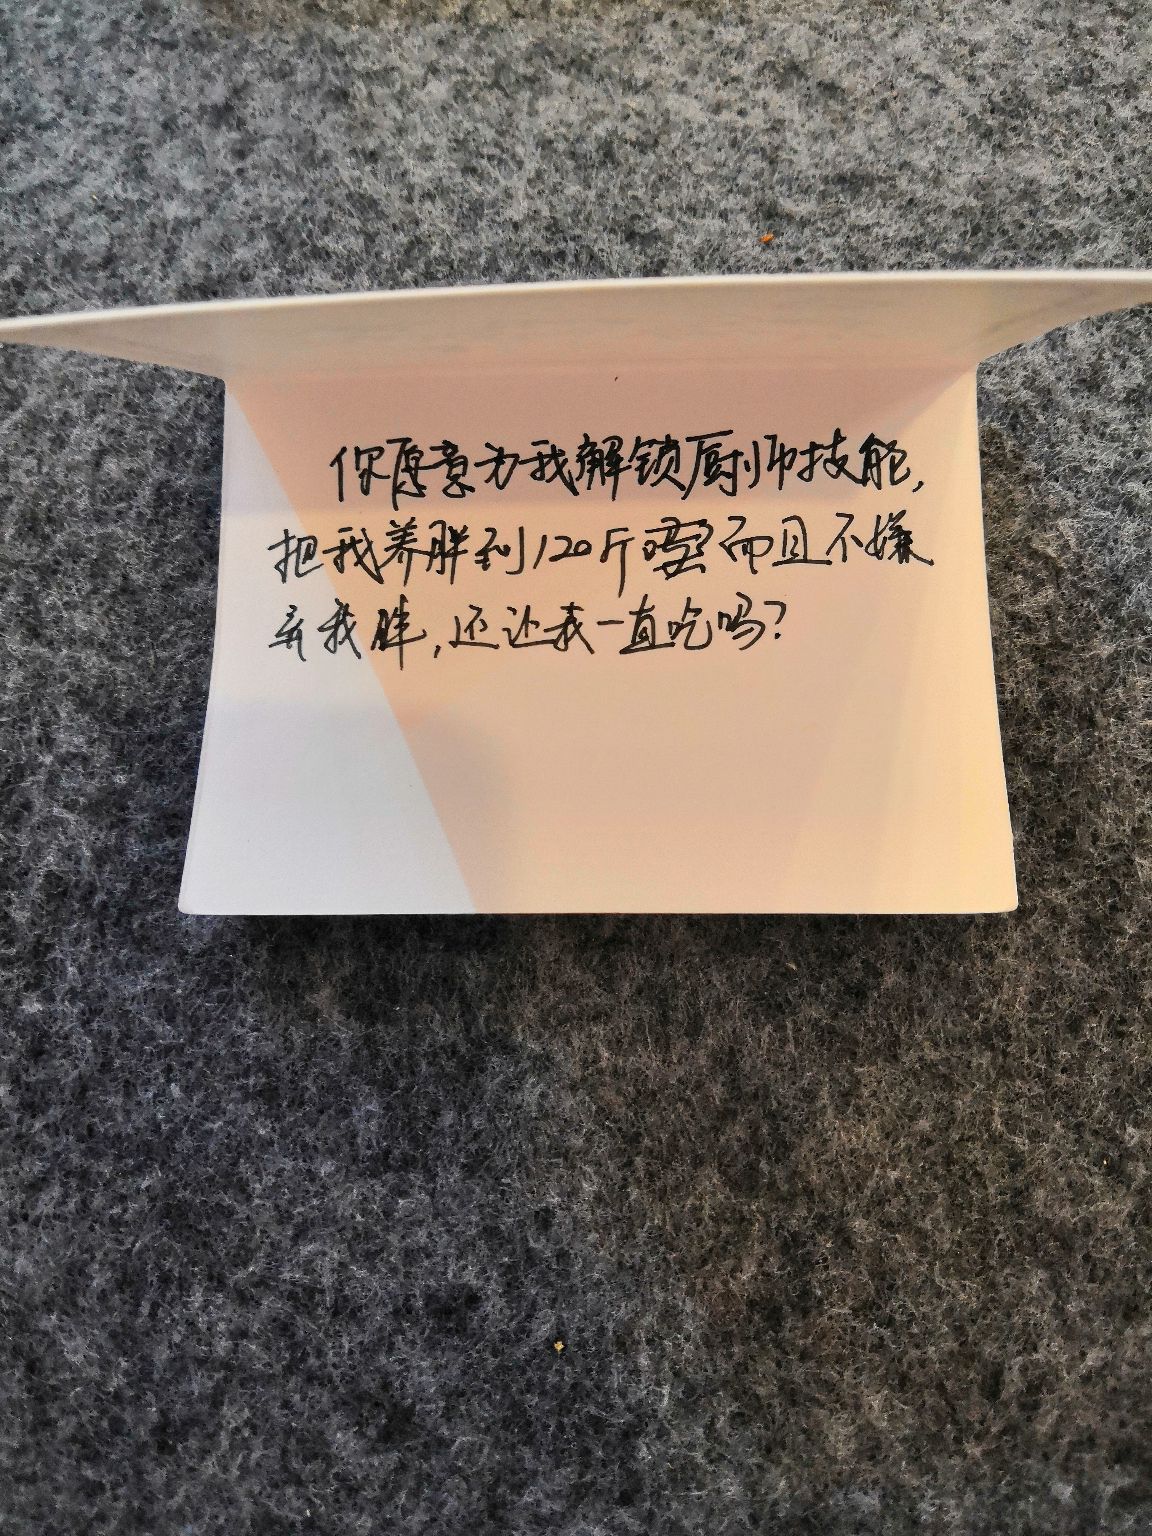 你愿意为我解锁厨师技能,
把我养胖到120斤 而且不嫌
弃我胖,还让我一直吃吗?